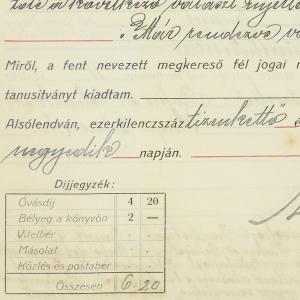 a következő választ
„Már rendezve
Miről, a fent nevezett megkereső fél jogai
tanusitványt kiadtam.
Alsólendván, ezerkilenczszáz tizenkettő
negyedik napján.
Díjjegyzék:
Óvásdíj 4 20
Bélyeg a könyvön 2 —
Vitelbér . .
Másolat - -
Közlés és postabér . .
Összesen 6 . 20